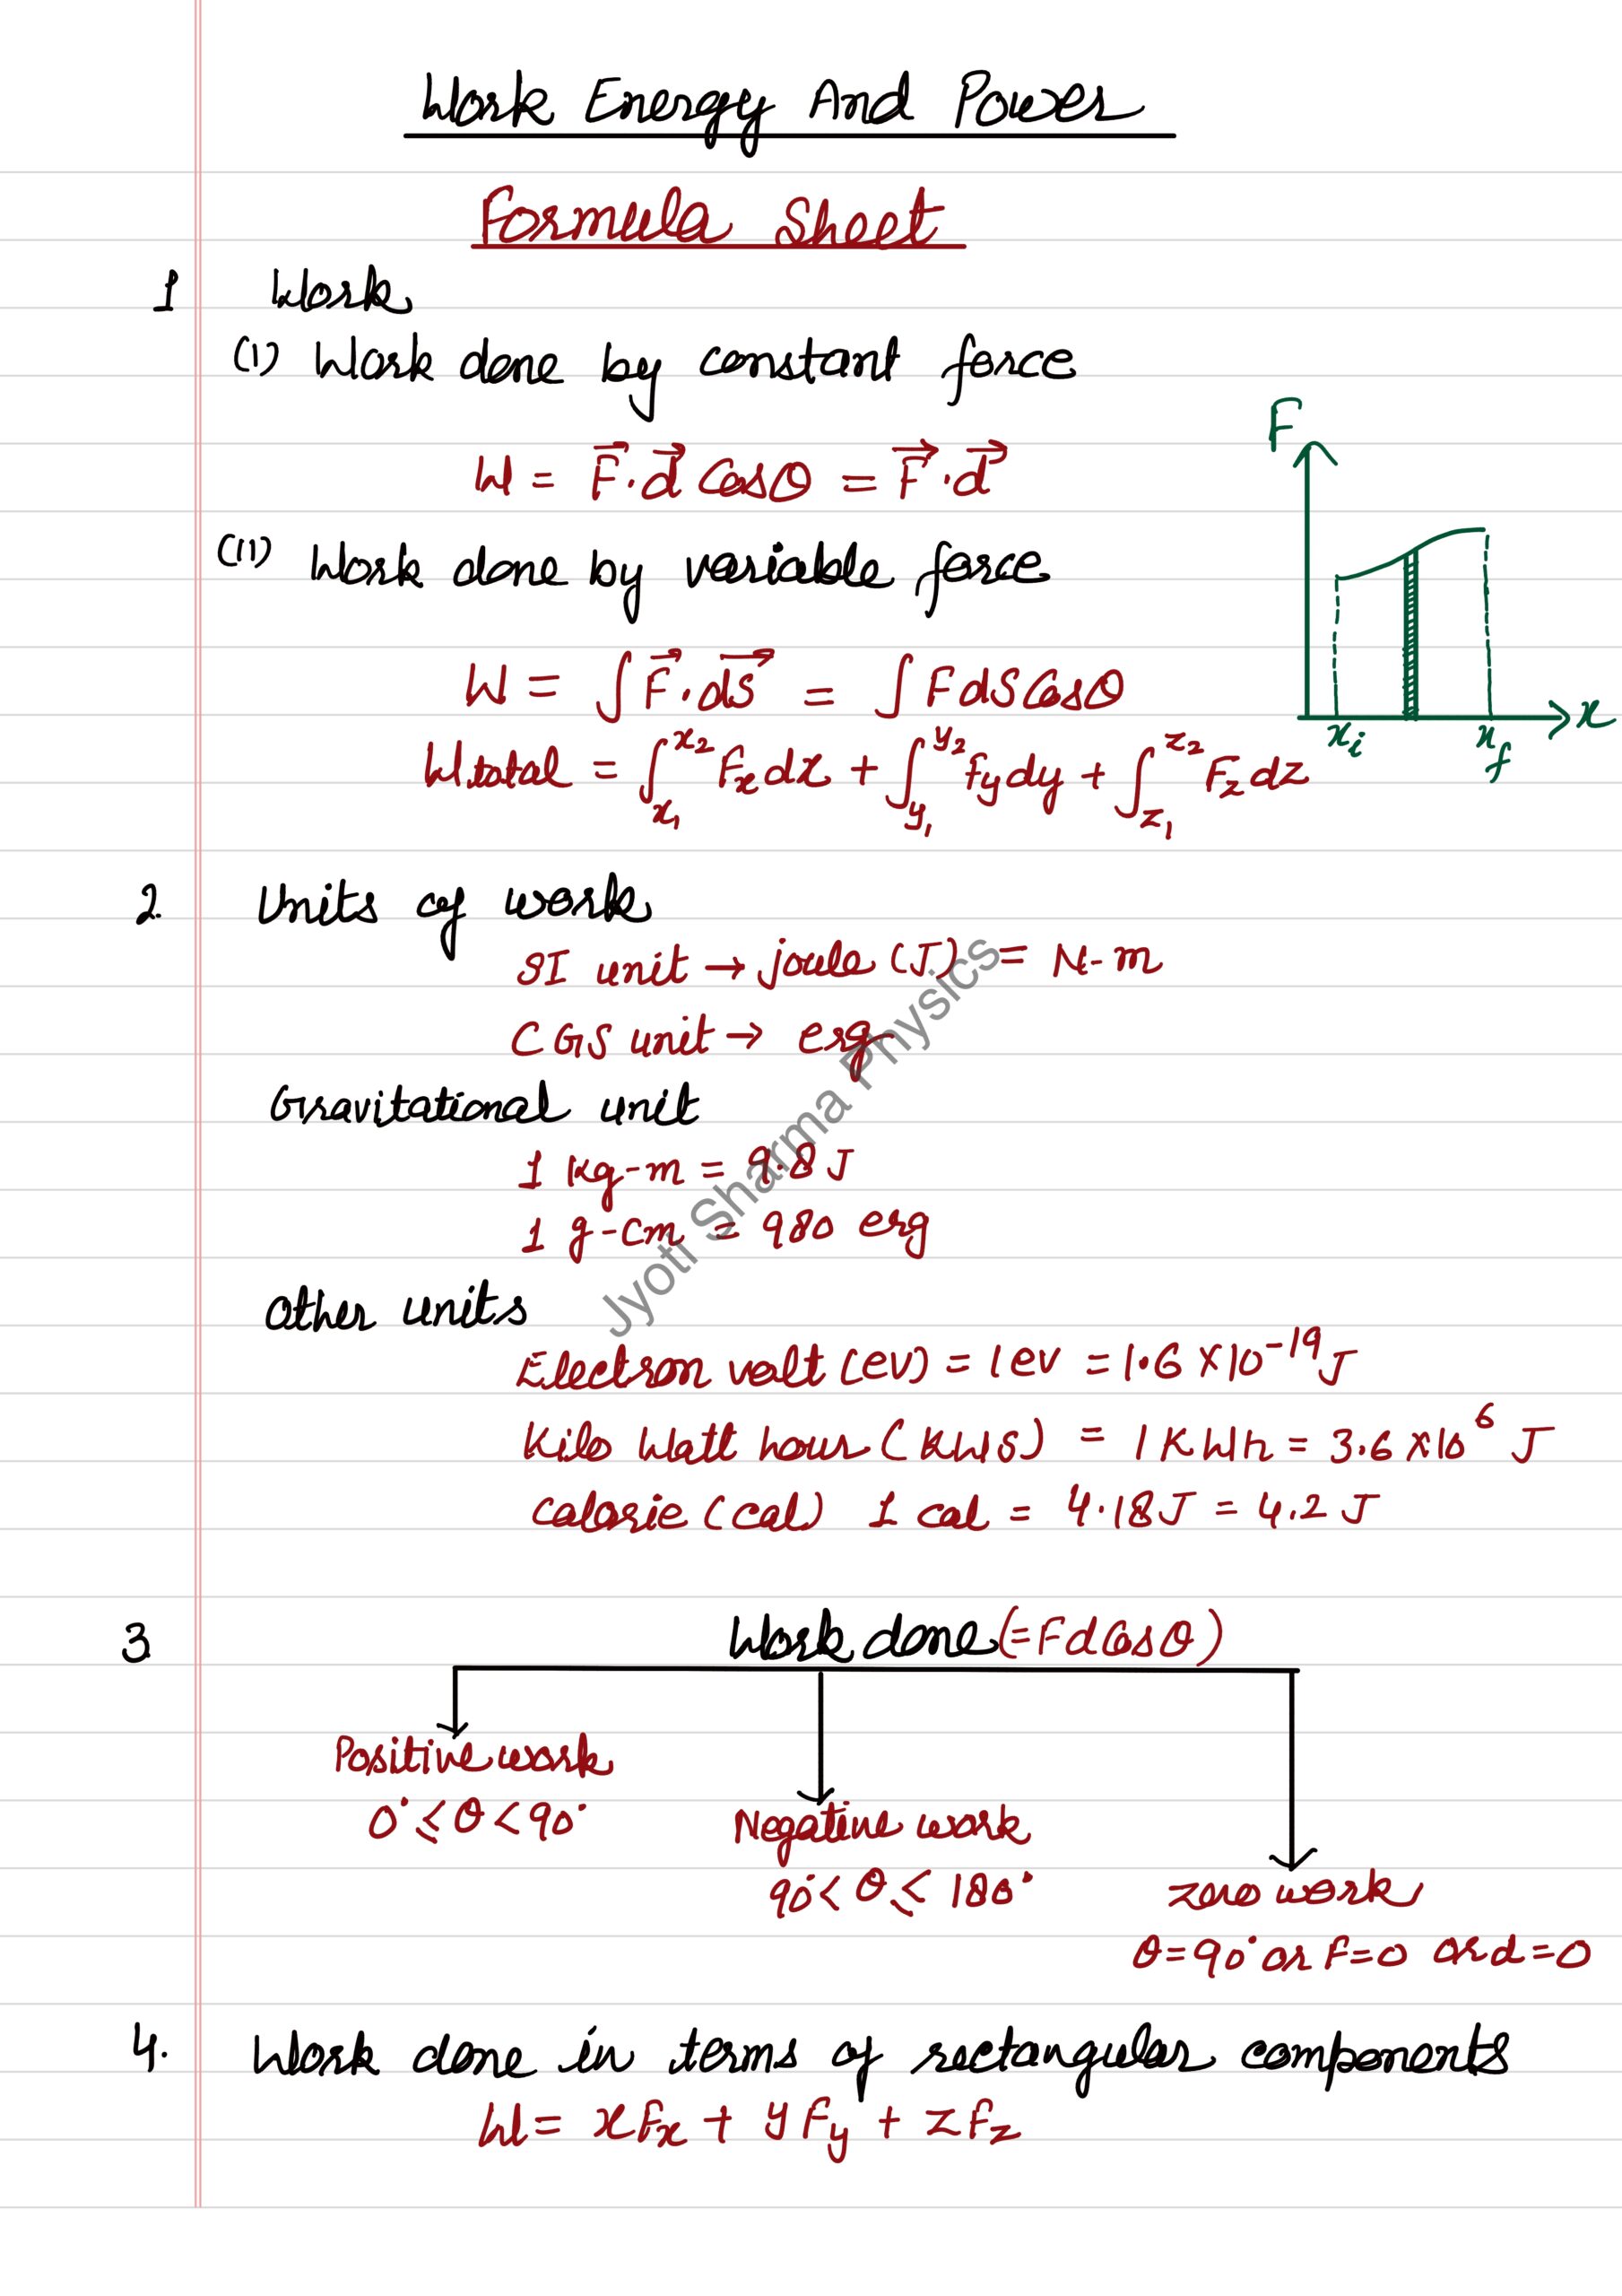 Work Energy And Power
Formula Sheet
1 Work
(1) Work done by constant force
W = F⃗.d⃗ Cosθ = F⃗.d⃗
(11) Work done by variable force
W = ∫F⃗.dS⃗ = ∫FdSCosθ
Wtotal = ∫x₁^x₂ Fx dx + ∫y₁^y₂ Fy dy + ∫z₁^z₂ Fz dz
F
x
xi
xf
2. Units of work
SI unit → joule (J) = N-m
CGS unit → erg
Gravitational unit
1 kg-m = 9.8 J
1 g-cm = 980 erg
Other units
Electron volt (ev) = 1ev = 1.6 × 10⁻¹⁹ J
Kilo Watt hour (KWS) = 1 KWh = 3.6 ×10⁶ J
Calorie (cal) 1 cal = 4.18 J = 4.2 J
3 Work done (=FdCosθ)
Positive work
0° ≤ θ < 90°
Negative work
90° < θ ≤ 180°
zero work
θ=90° or F=0 or d=0
4. Work done in terms of rectangular components
W = xFx + yFy + zFz
Jyoti Sharma Physics